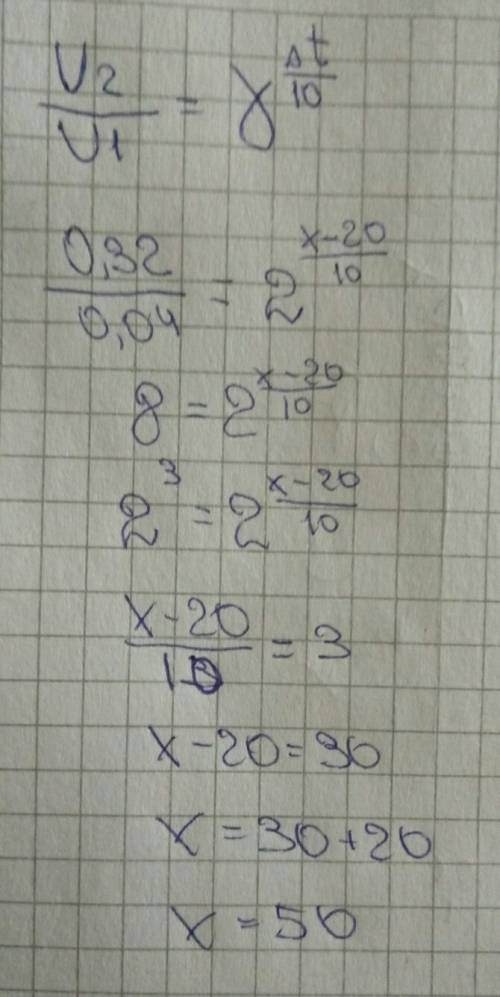 V2/V1 = γ^(Δt/10)
0,32/0,04 = 2^(x-20/10)
8 = 2^(x-20/10)
2^3 = 2^(x-20/10)
x-20/10 = 3
x-20=30
x=30+20
x=50